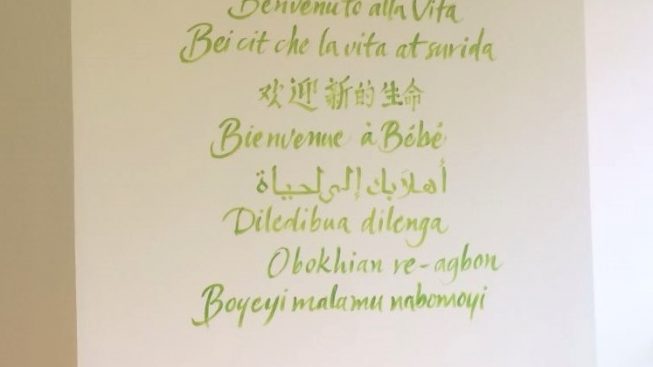 Benvenuto alla Vita
Bei cit che la vita at surida
欢迎新的生命
Bienvenue à Bébé
أهلا بك إلى لحياة
Diledibua dilenga
Obokhian re-agbon
Boyeyi malamu nabomoyi